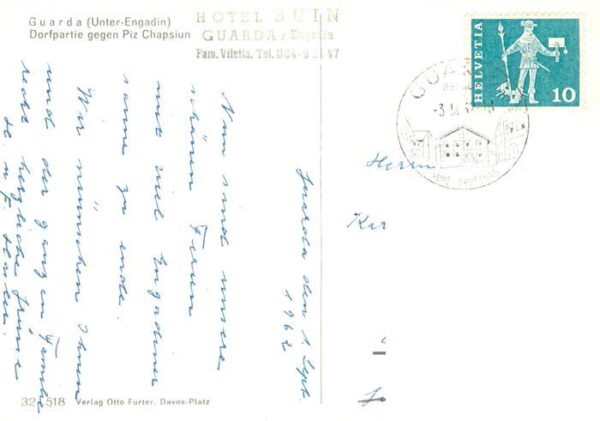 Guarda (Unter-Engadin)
Dorfpartie gegen Piz Chapsiun
HOTEL BUIN
GUARDA / Engadin
Fam. Viletta, Tel. 084-9 21 47
HELVETIA
10
GUAR
Guarda den 1 Sept.
1962
Nun sind unsere
schönen Ferien
mit viel Engadiner
sonne zu ende.
Wir wünschen Ihnen
und der ganzen Familie
recht herzliche Grüsse
Herrn
Kar
32 518 Verlag Otto Furter, Davos-Platz